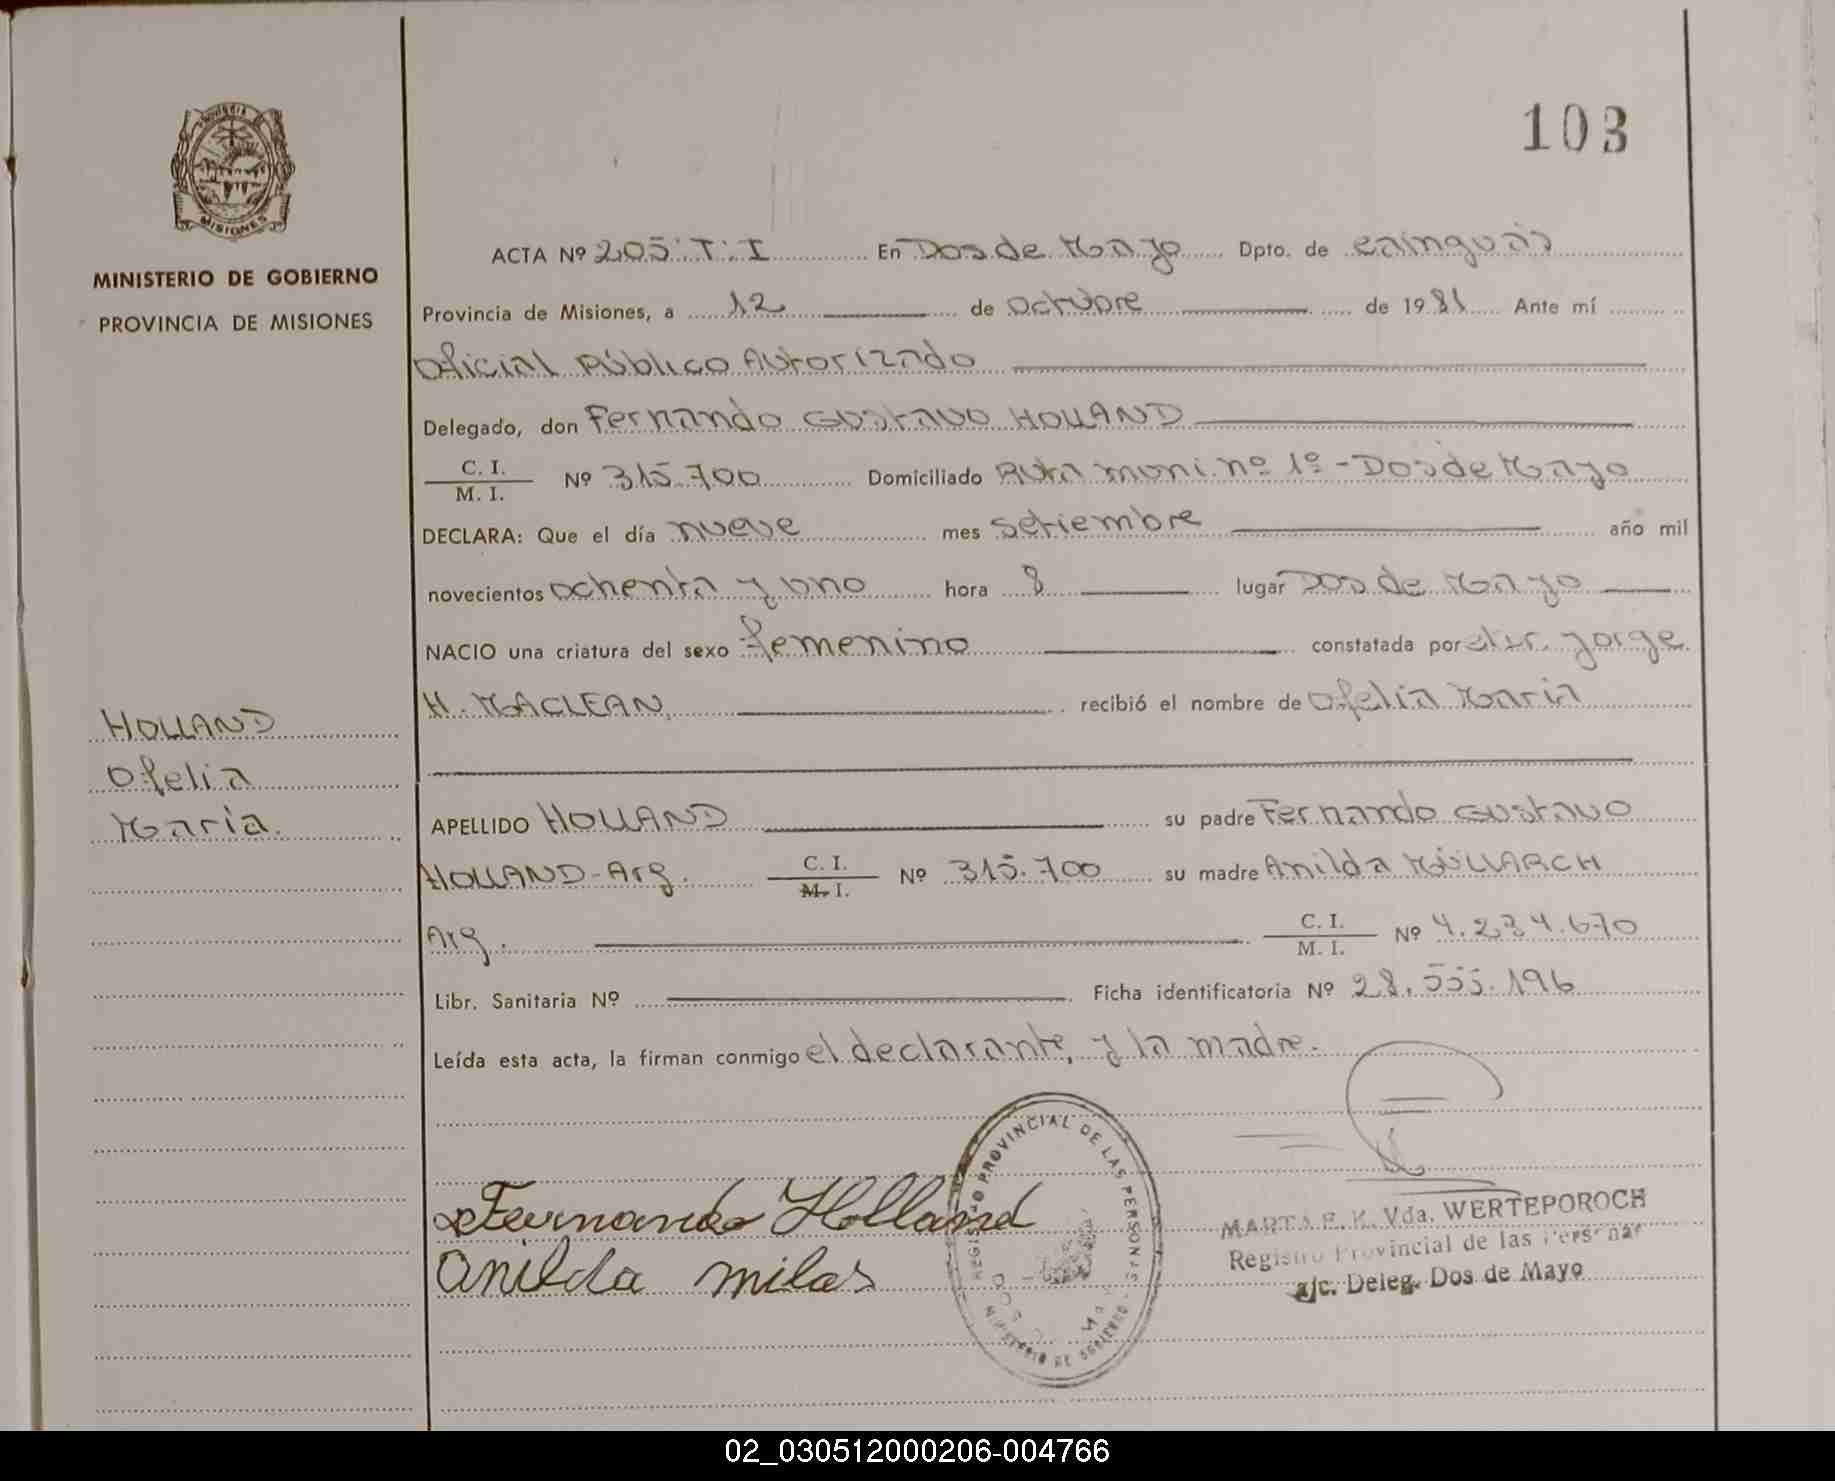 103
MISIONES
MINISTERIO DE GOBIERNO
PROVINCIA DE MISIONES
ACTA Nº 205·T·I En Dos de Mayo Dpto. de Cainguás
Provincia de Misiones, a 12 de Octubre de 1981 Ante mí
Oficial Público Autorizado
Delegado, don Fernando Gustavo HOLLAND
C. I.
M. I. Nº 315.700 Domiciliado Ruta moni. nº 1º - Dos de Mayo
DECLARA: Que el día nueve mes setiembre año mil
novecientos ochenta y uno hora 8 lugar Dos de Mayo
NACIO una criatura del sexo femenino constatada por Jorge
H. MACLEAN, recibió el nombre de Ofelia Maria
HOLLAND
Ofelia
Maria.
APELLIDO HOLLAND su padre Fernando Gustavo
HOLLAND-Arg. C. I.
M. I. Nº 315.700 su madre Anilda MÜLLARCH
Arg. C. I.
M. I. Nº 4.234.670
Libr. Sanitaria Nº Ficha identificatoria Nº 28.555.196
Leída esta acta, la firman conmigo el declarante, y la madre.
Fernando Holland
Anilda milas
REGISTRO PROVINCIAL DE LAS PERSONAS
MINISTERIO DE GOBIERNO
MARTA E. K. Vda. WERTEPOROCH
Registro Provincial de las Personas
a/c. Deleg. Dos de Mayo
02_030512000206-004766